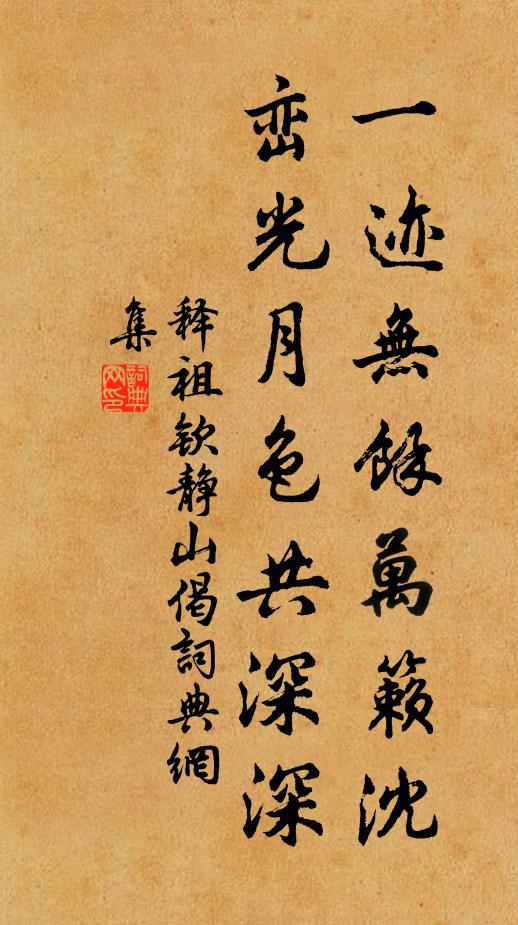 一迹無餘萬籟沈
峦光月色共深深
释祖钦静山偈詞典網
集
詞典網印